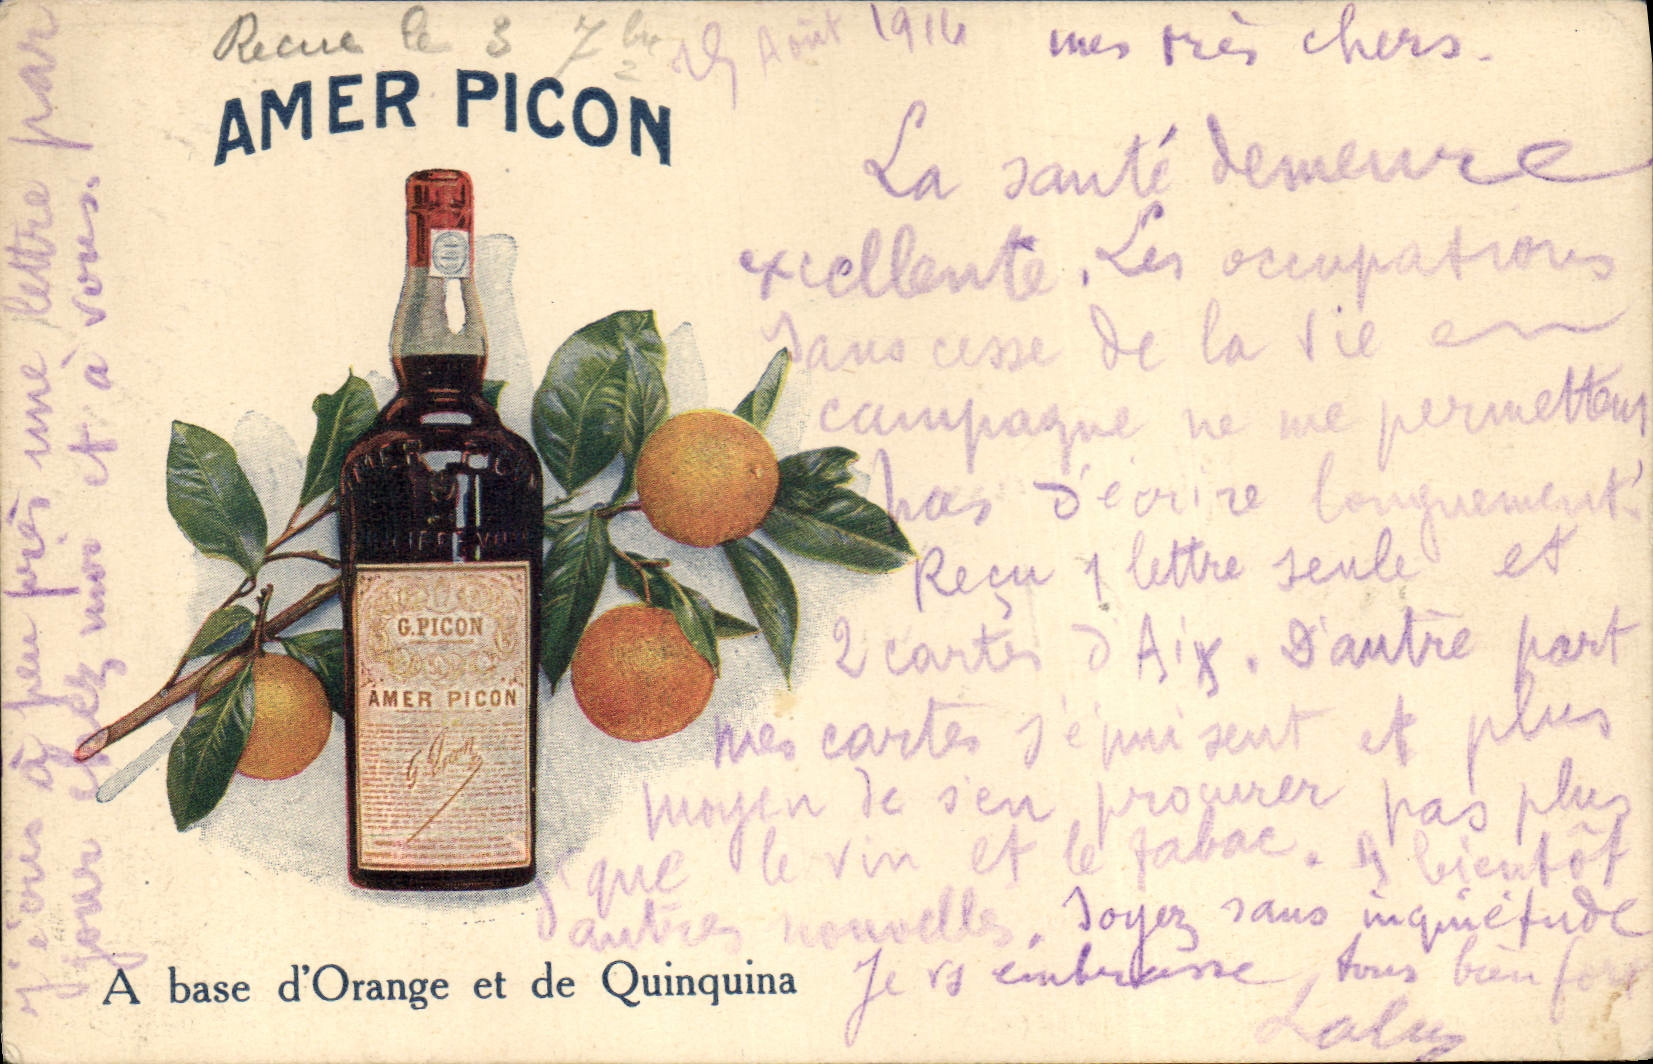 Recue le 3 7bre
25 Août 1914 mes très chers.
AMER PICON
La santé demeure
excellente. Les occupations
sans cesse de la vie en
campagne ne me permettent
pas d'écrire longuement.
Reçu 1 lettre seule et
2 cartes d'Aix. D'autre part
mes cartes s'épuisent et plus
moyen de s'en procurer pas plus
que le vin et le tabac. A bientôt
d'autres nouvelles. Soyez sans inquiétude
Je vs embrasse tous bien fort
G. PICON
AMER PICON
G. Picon
A base d'Orange et de Quinquina
J'écris à peu près une lettre par
jour chez moi et à vous.